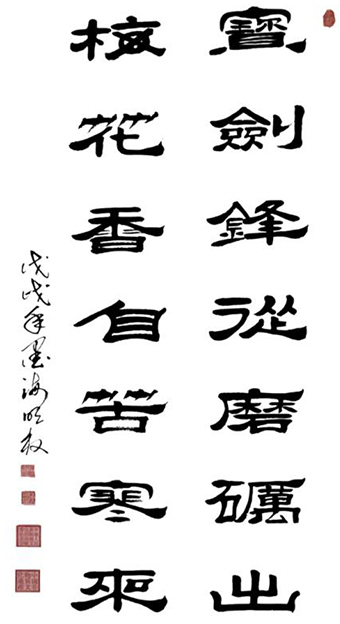 寶劍鋒從磨礪出
梅花香自苦寒來
戊戌年墨海